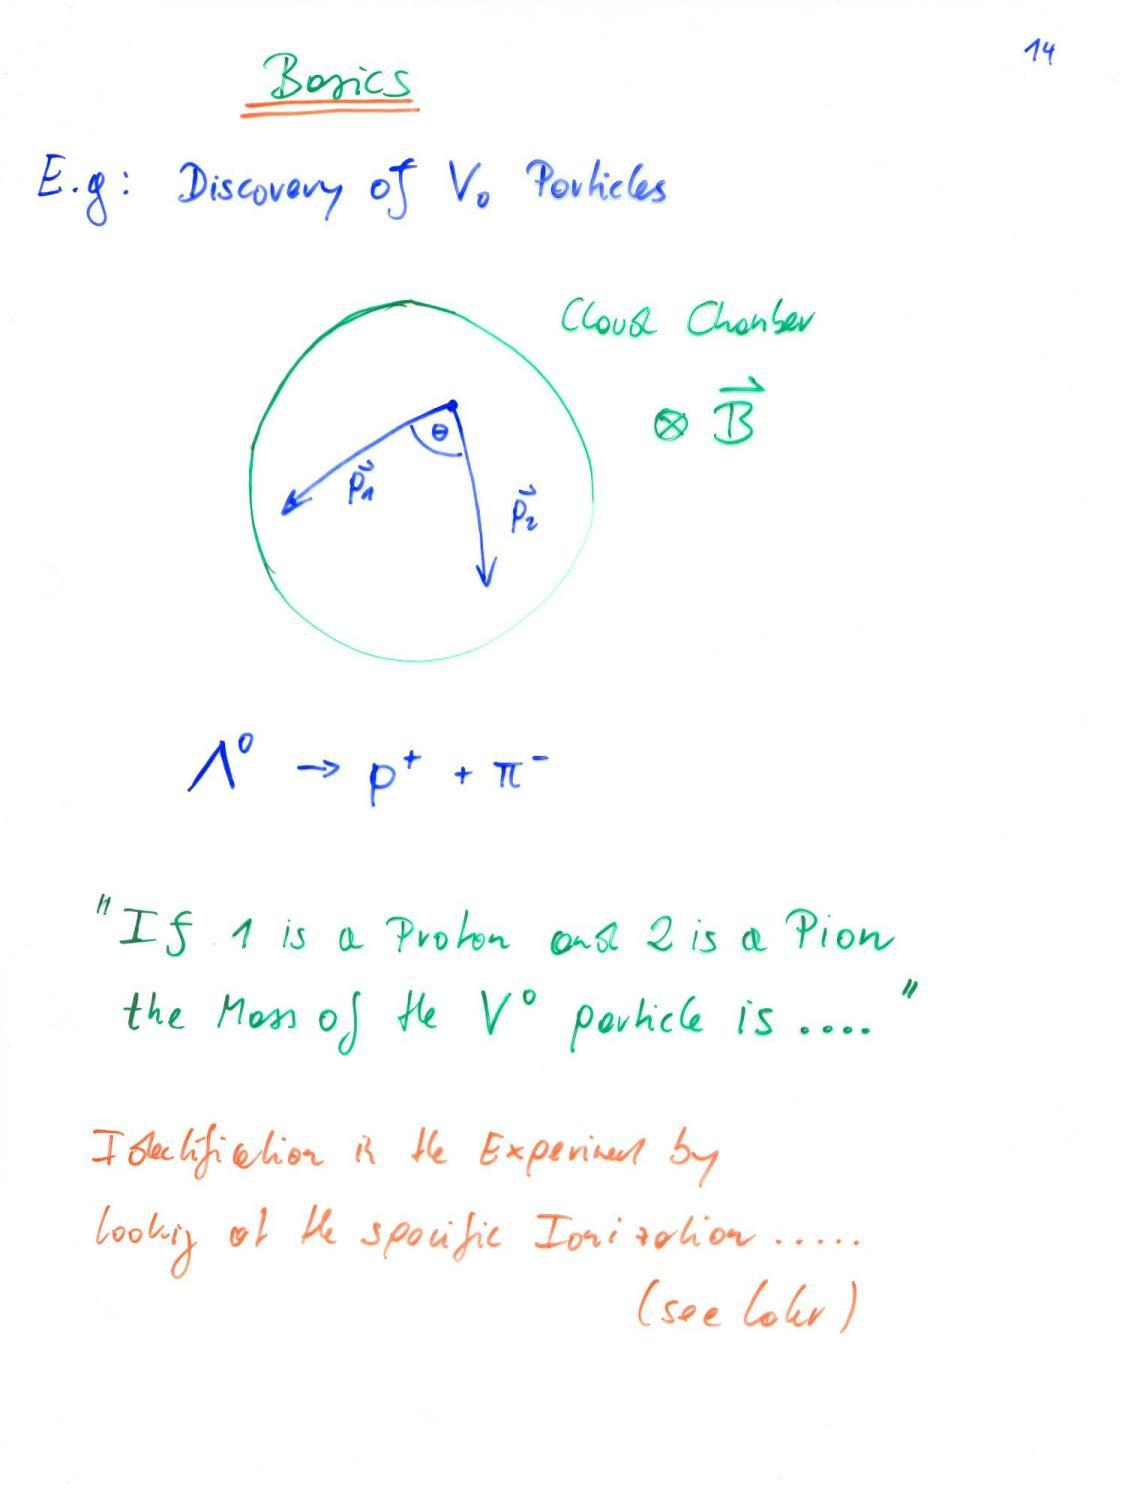 14
Basics
E.g: Discovery of V₀ Particles
Cloud Chamber
⊗ B⃗
Θ
p⃗₁
p⃗₂
Λ⁰ → p⁺ + π⁻
"If 1 is a Proton and 2 is a Pion
the Mass of the V⁰ particle is ...."
Identification in the Experiment by
looking at the specific Ionization .....
(see later)